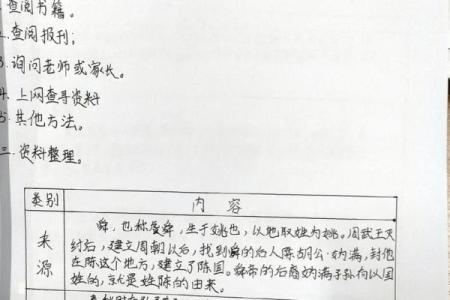 查阅书籍。
查阅报刊;
3. 询问老师或家长。
4. 上网查寻资料
5. 其他方法。
三. 资料整理。
类别 内容
来源
舜,也称虞舜,生于姚地,以地取姓为姚。周武王灭
纣后,建立周朝以后,找到舜的后人陈胡公·妫满,封他
在陈这个地方,建立了陈国。舜帝的后裔妫满子孙向以国
姓的,就是姓陈的由来。